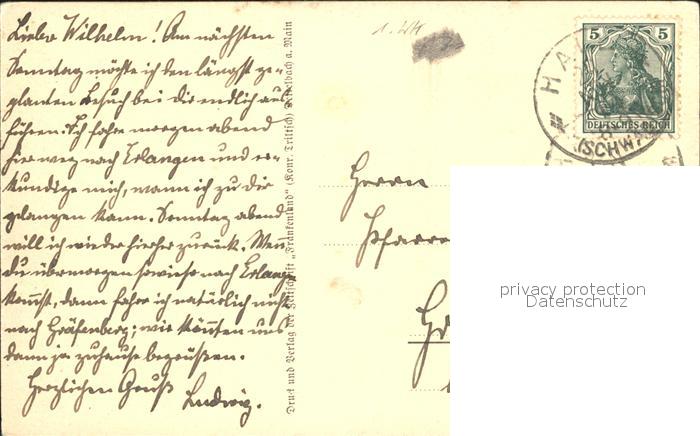 Lieber Wilhelm! Am nächsten
Sonntag möchte ich den längst ge-
planten Besuch bei dir endlich aus
führen. Ich fahre morgen abend
hier weg nach Erlangen und er-
kundige mich, wann ich zu dir
gelangen kann. Sonntag abend
will ich wieder hierher zurück. Wenn
du übermorgen sowieso nach Erlang
kommst, dann fahre ich natürlich nicht
nach Gräfenberg; wir könnten uns
dann ja zuhause begrüßen.
Herzlichen Gruß
Ludwig.
Druck und Verlag der Zeitschrift „Frankenland“ (Konr. Triltsch), Dettelbach a. Main
5 5
DEUTSCHES REICH
HA
(SCHW
Herrn
Pfarre
Gr
privacy protection
Datenschutz